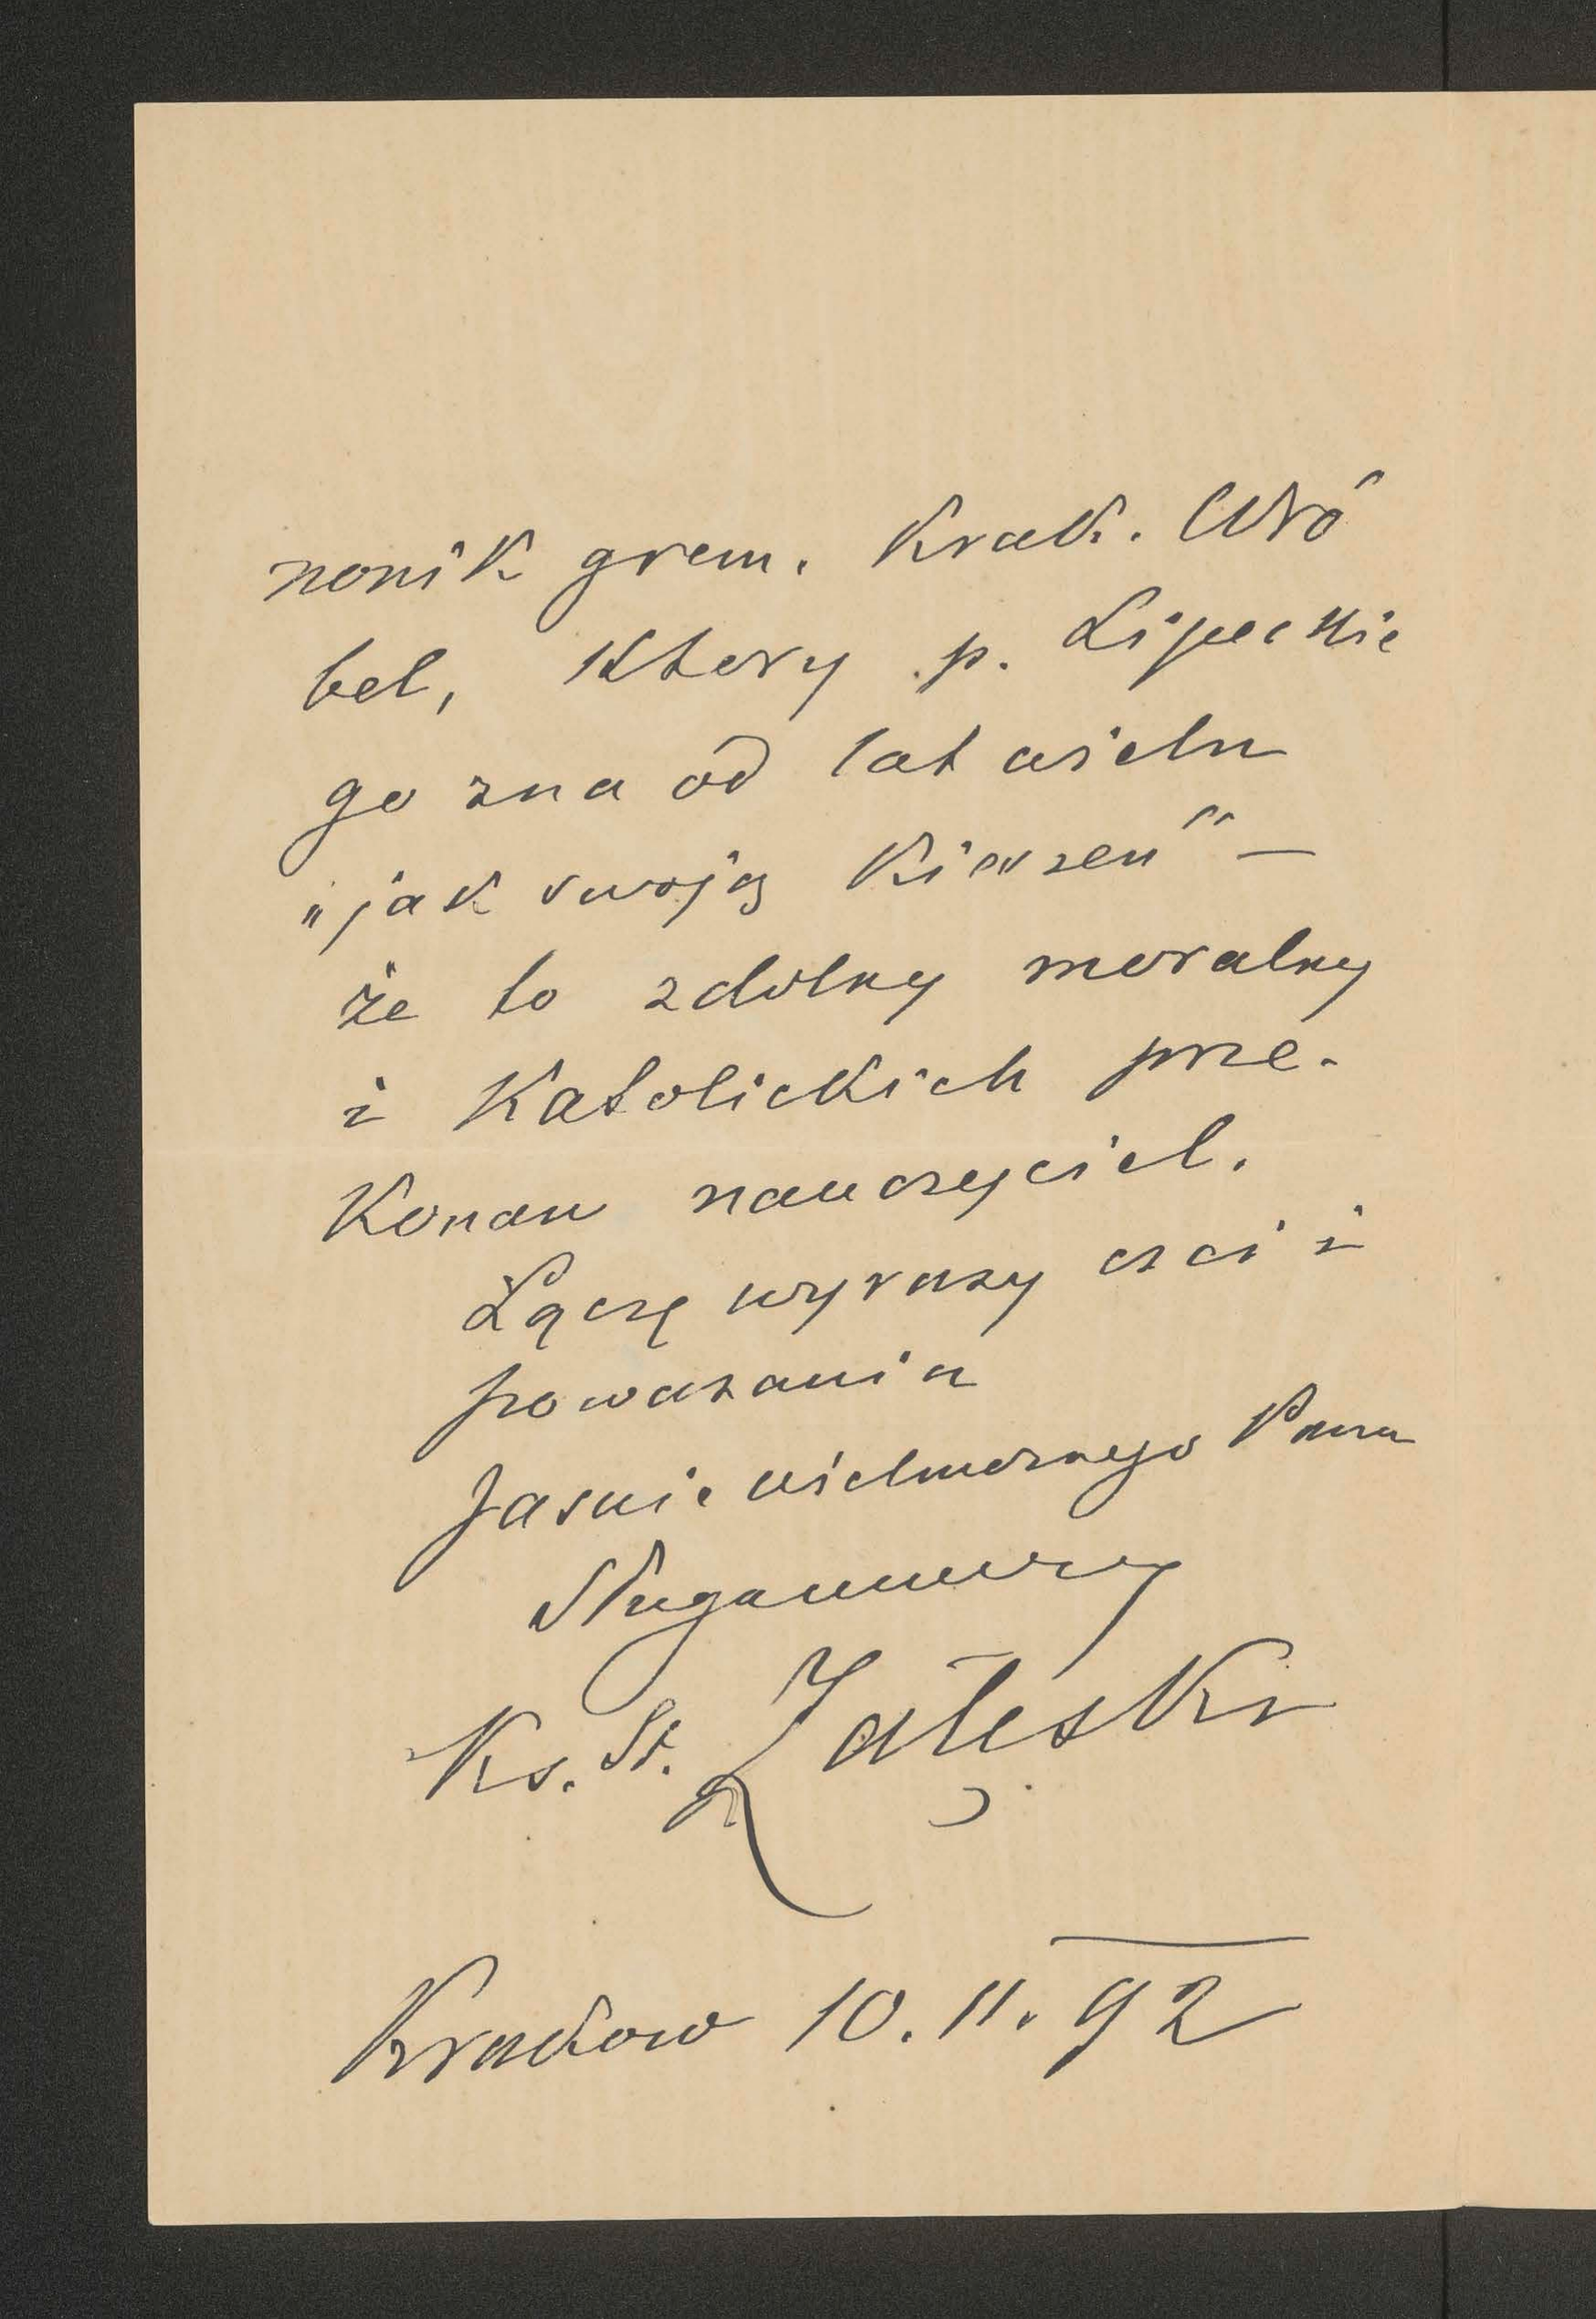 nonik grem. Krak. Wró
bel, ktory p. Lipeckie
go zna od lat wielu
„jak swoją kieszeń" —
że to zdolny moralny
i katolickich prze-
konan nauczyciel.
Łączę wyrazy czci i
powazania
Jasnie wielmoznego Pana
Sługa
Ks. St. Załeski
Krakow 10. 11. 92